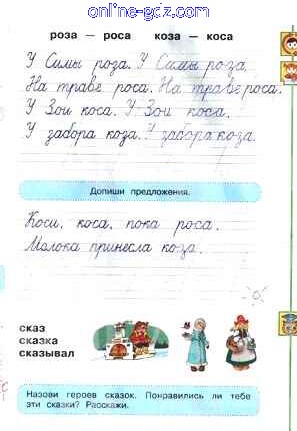 online-gdz.com
роза — роса коза — коса
У Симы роза. У Симы роза.
На траве роса. На траве роса.
У Зои коса. У Зои коса.
У забора коза. У забора коза.
Допиши предложения.
Коси, коса, пока роса.
Молока принесла коза.
сказ
сказка
сказывал
Назови героев сказок. Понравились ли тебе
эти сказки? Расскажи.